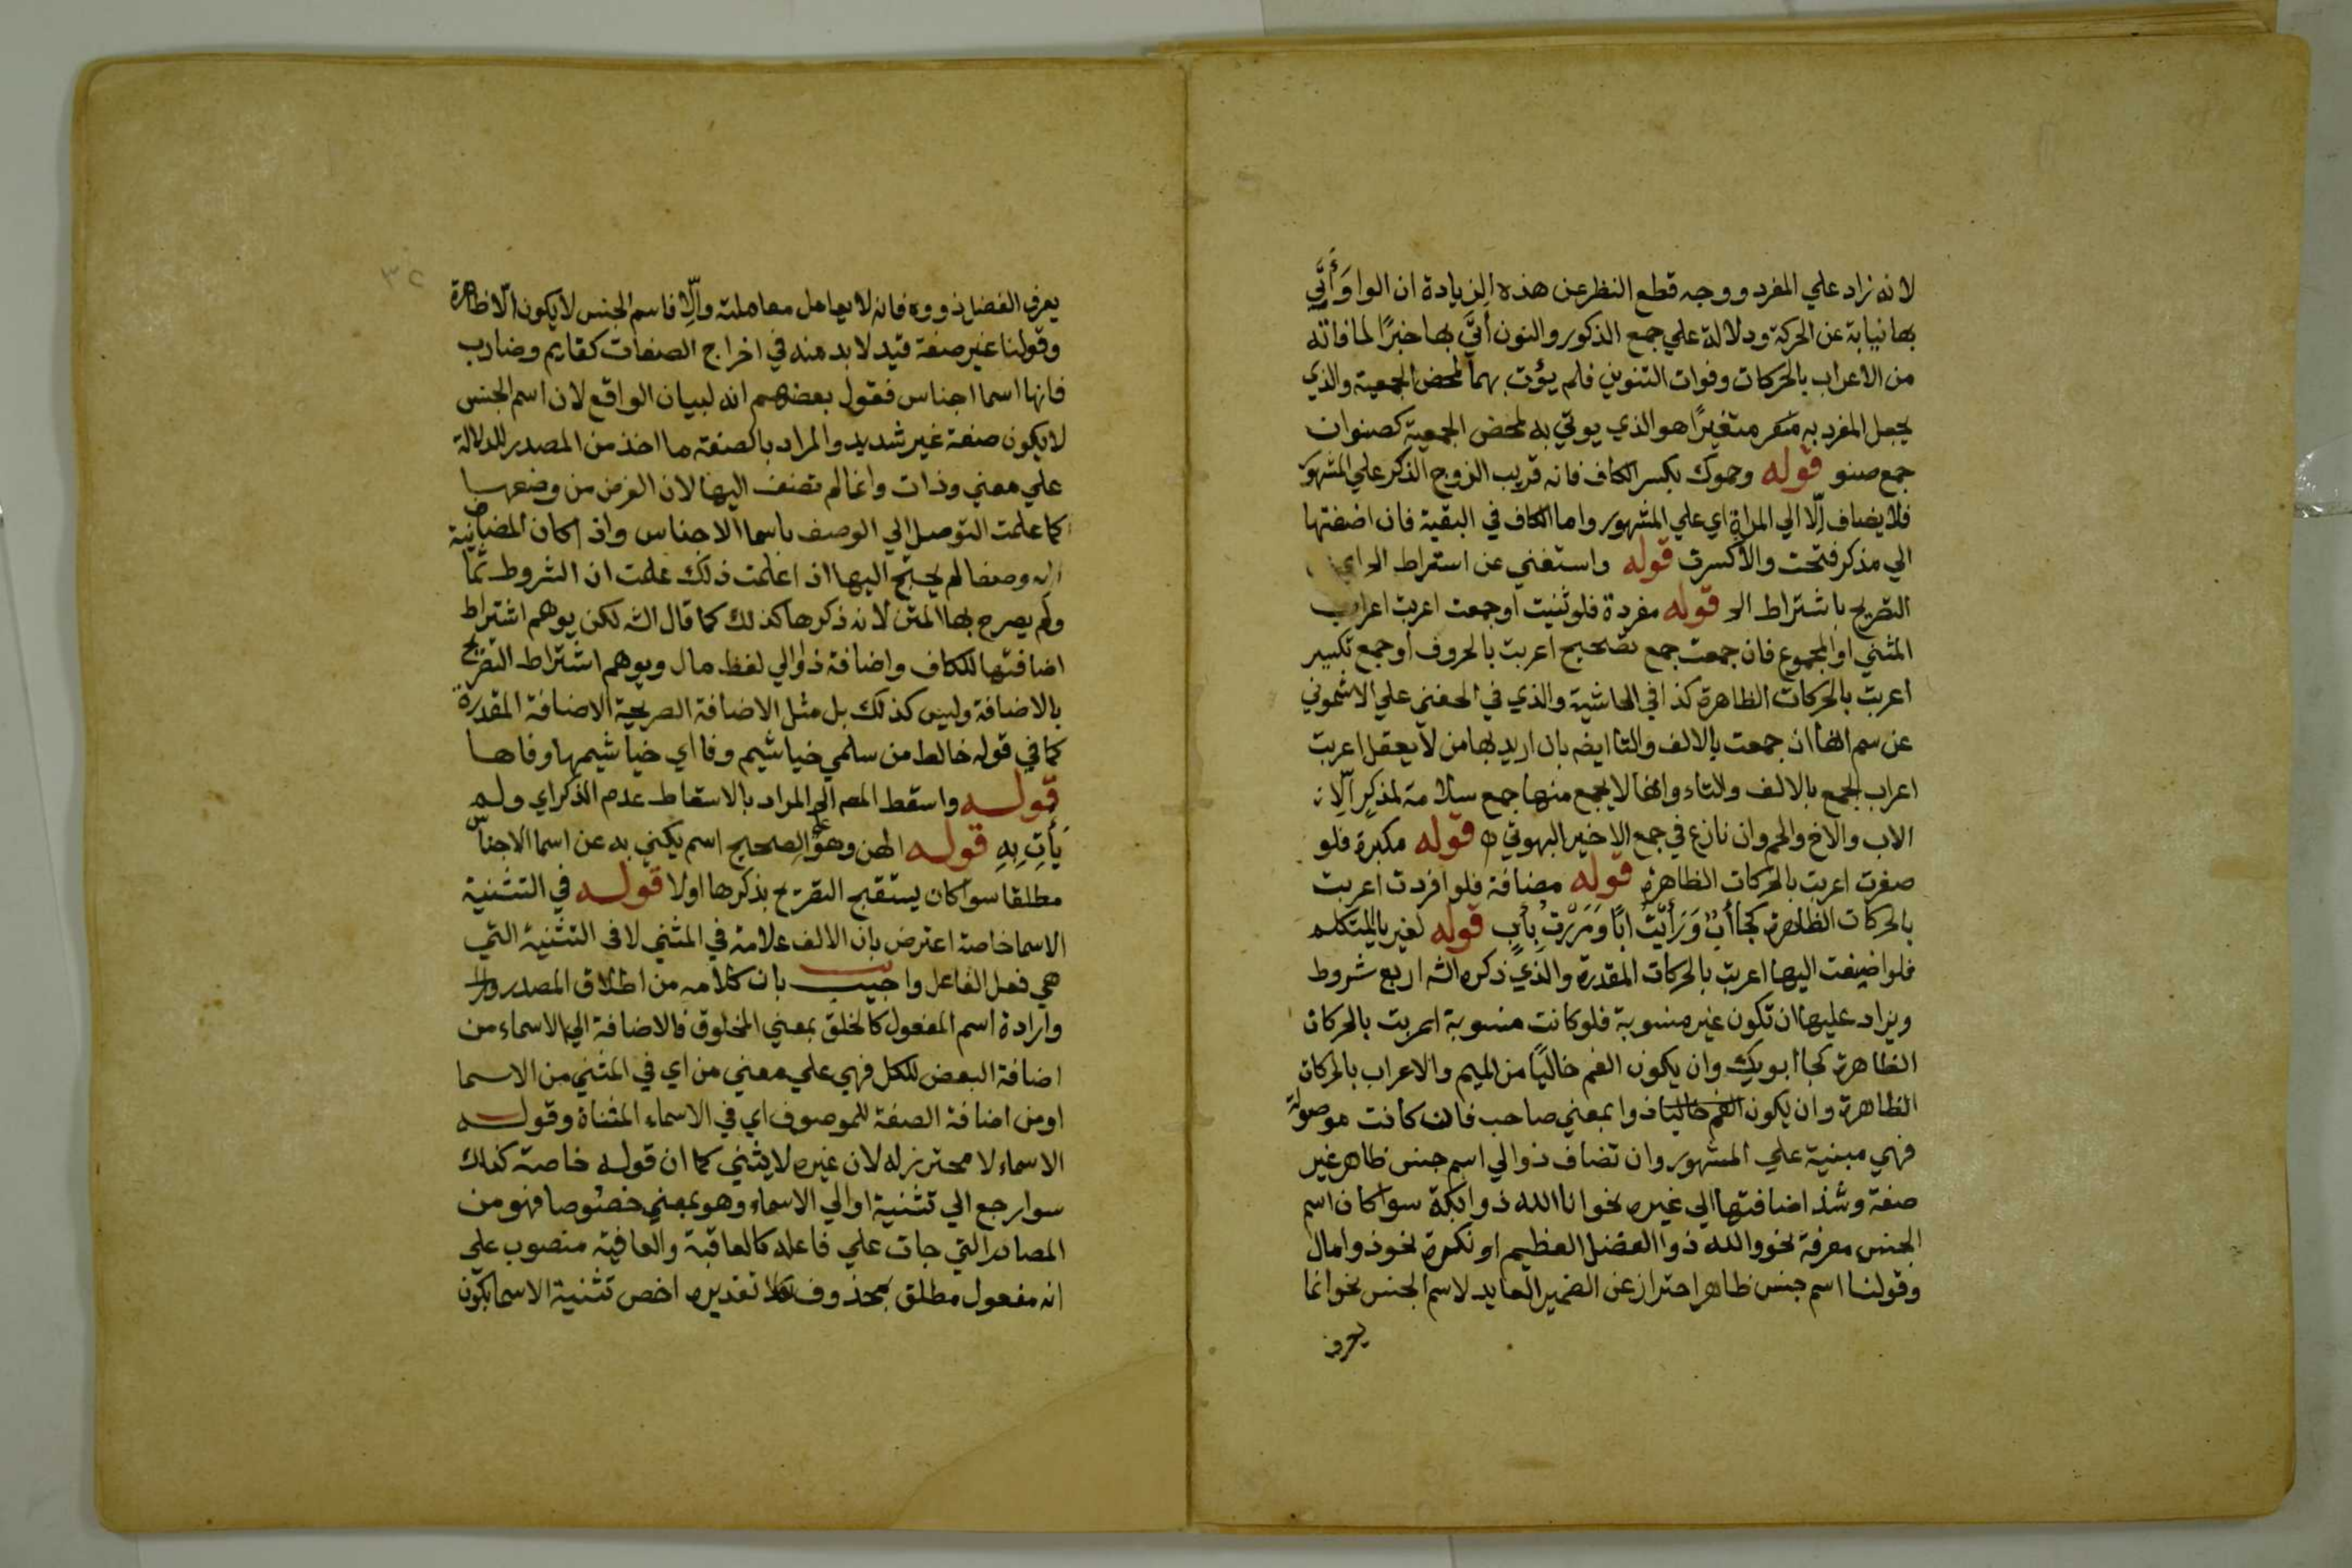 لانه زاد علي المفرد ووجه قطع النظر عن هذه الزيادة ان الواوَ أُتَي
بها نيابة عن الحركة ودلالة علي جمع الذكور والنون أُتَي بها خبرًا لما فاته
من الاعراب بالحركات وفوات التنوين فلم يؤت بهما لمحض الجمعية والذي
يجعل المفرد به متغيرًا هو الذي يوتي به لمحض الجمعية كصنوان
جمع صنو قوله وحموك بكسر الكاف فانه قريب الزوج الذكر علي المشهور
فلا يضاف إلّا الي المراة اي علي المشهور واما الكاف في البقية فان اضفتها
الي مذكر فتحت والا كسرت قوله واستغني عن اشتراط الخ اي
التصريح باشتراط الخ قوله مفردة فلو ثنيت اوجمعت اعربت اعراب
المثني او المجموع فان جمعت جمع تصحيح اعربت بالحروف أوجمع تكبير
اعربت بالحركات الظاهرة كذا في الحاشية والذي في الحفني علي الاشموني
عن سم انها ان جمعت بالالف والتا ايضه بان اريد بها من لا يعقل اعربت
اعراب الجمع بالالف والتاء وانها لا يجمع منها جمع سلامة لمذكر إلّا
الاب والاخ والحم وان نازع في جمع الاخير البهوتي اه قوله مكبرة فلو
صغرت اعربت بالحركات الظاهرة قوله مضافة فلو افردت اعربت
بالحركات الظاهرة كجا أبٌ وَرَأَيْتُ ابًا وَمَرَرْتُ بِأَبٍ قوله لغير يا المتكلم
فلو اضيفت اليها اعربت بالحركات المقدرة والذي ذكره الشه اربع شروط
ويزاد عليها ان تكون غير منسوبة فلو كانت منسوبة اعربت بالحركات
الظاهرة كجا ابويك وان يكون الفم خاليًا من الميم والا عراب بالحركات
الظاهرة وان يكون الفم خاليا ذوا بمعني صاحب فان كانت موصولة
فهي مبنية علي المشهور وان تضاف ذوالي اسم جنس ظاهر غير
صفة وشذ اضافتها الي غيره نحو انا الله ذوا بكة سوا كان اسم
الجنس معرفة نحو والله ذوا الفضل العظيم او نكرة نحو ذوا مال
وقولنا اسم جنس ظاهر احتراز عن الضمير العايد لاسم الجنس نحو انما
يعرف
٣٢
يعرف الفضل ذووه فانه لا يعامل معاملته وإلّا فاسم الجنس لا يكون الّا ظاهرا
وقولنا غير صفة قيد لا بد منه في اخراج الصفات كقايم وضارب
فانها اسما اجناس فقول بعضهم انه لبيان الواقع لان اسم الجنس
لا يكون صفة غير شديد والمراد بالصفة ما اخذ من المصدر للدلالة
علي معني وذات وانما لم تضف اليها لان الغرض من وضعها
كما علمت التوصل الي الوصف باسما الاجناس واذا كان المضاف
اليه وصفا لم يحتج اليها اذا علمت ذلك علمت ان الشروط ثمانية
ولم يصرح بها المتن لانه ذكرها كذلك كما قال الشه لكن يوهم اشتراط
اضافتها للكاف واضافة ذوالي لفظ مال ويوهم اشتراط التصريح
بالاضافة وليس كذلك بل مثل الاضافة الصريحة الاضافة المقدرة
كما في قوله خالط من سلمي خياشيم وفا اي خياشيمها وفاها
قوله واسقط المصه الخ المراد بالاسقاط عدم الذكر اي ولم
يَأْتِ بِهِ قوله الهن وهو علي الصحيح اسم يكني به عن اسما الاجناس
مطلقا سوا كان يستقبح التصريح بذكرها اولا قوله في التثنية
الاسما خاصة اعترض بان الالف علامة في المثني لا في التثنية التي
هي فعل الفاعل واجيب بان كلامه من اطلاق المصدر
وارادة اسم المفعول كالخلق بمعني المخلوق فالاضافة الي الاسماء من
اضافة البعض للكل فهي علي معني من اي في المثني من الاسما
اومن اضافة الصفة للموصوف اي في الاسماء المثناة وقوله
الاسماء لا محترز له لان غيره لا يثني كما ان قوله خاصة كذلك
سوا رجع الي تثنية اوالي الاسماء وهو بمعني خصوصا فهو من
المصادر التي جات علي فاعله كالعاقبة والعافية منصوب علي
انه مفعول مطلق بمحذوف تقديره اخص تثنية الاسما بكون